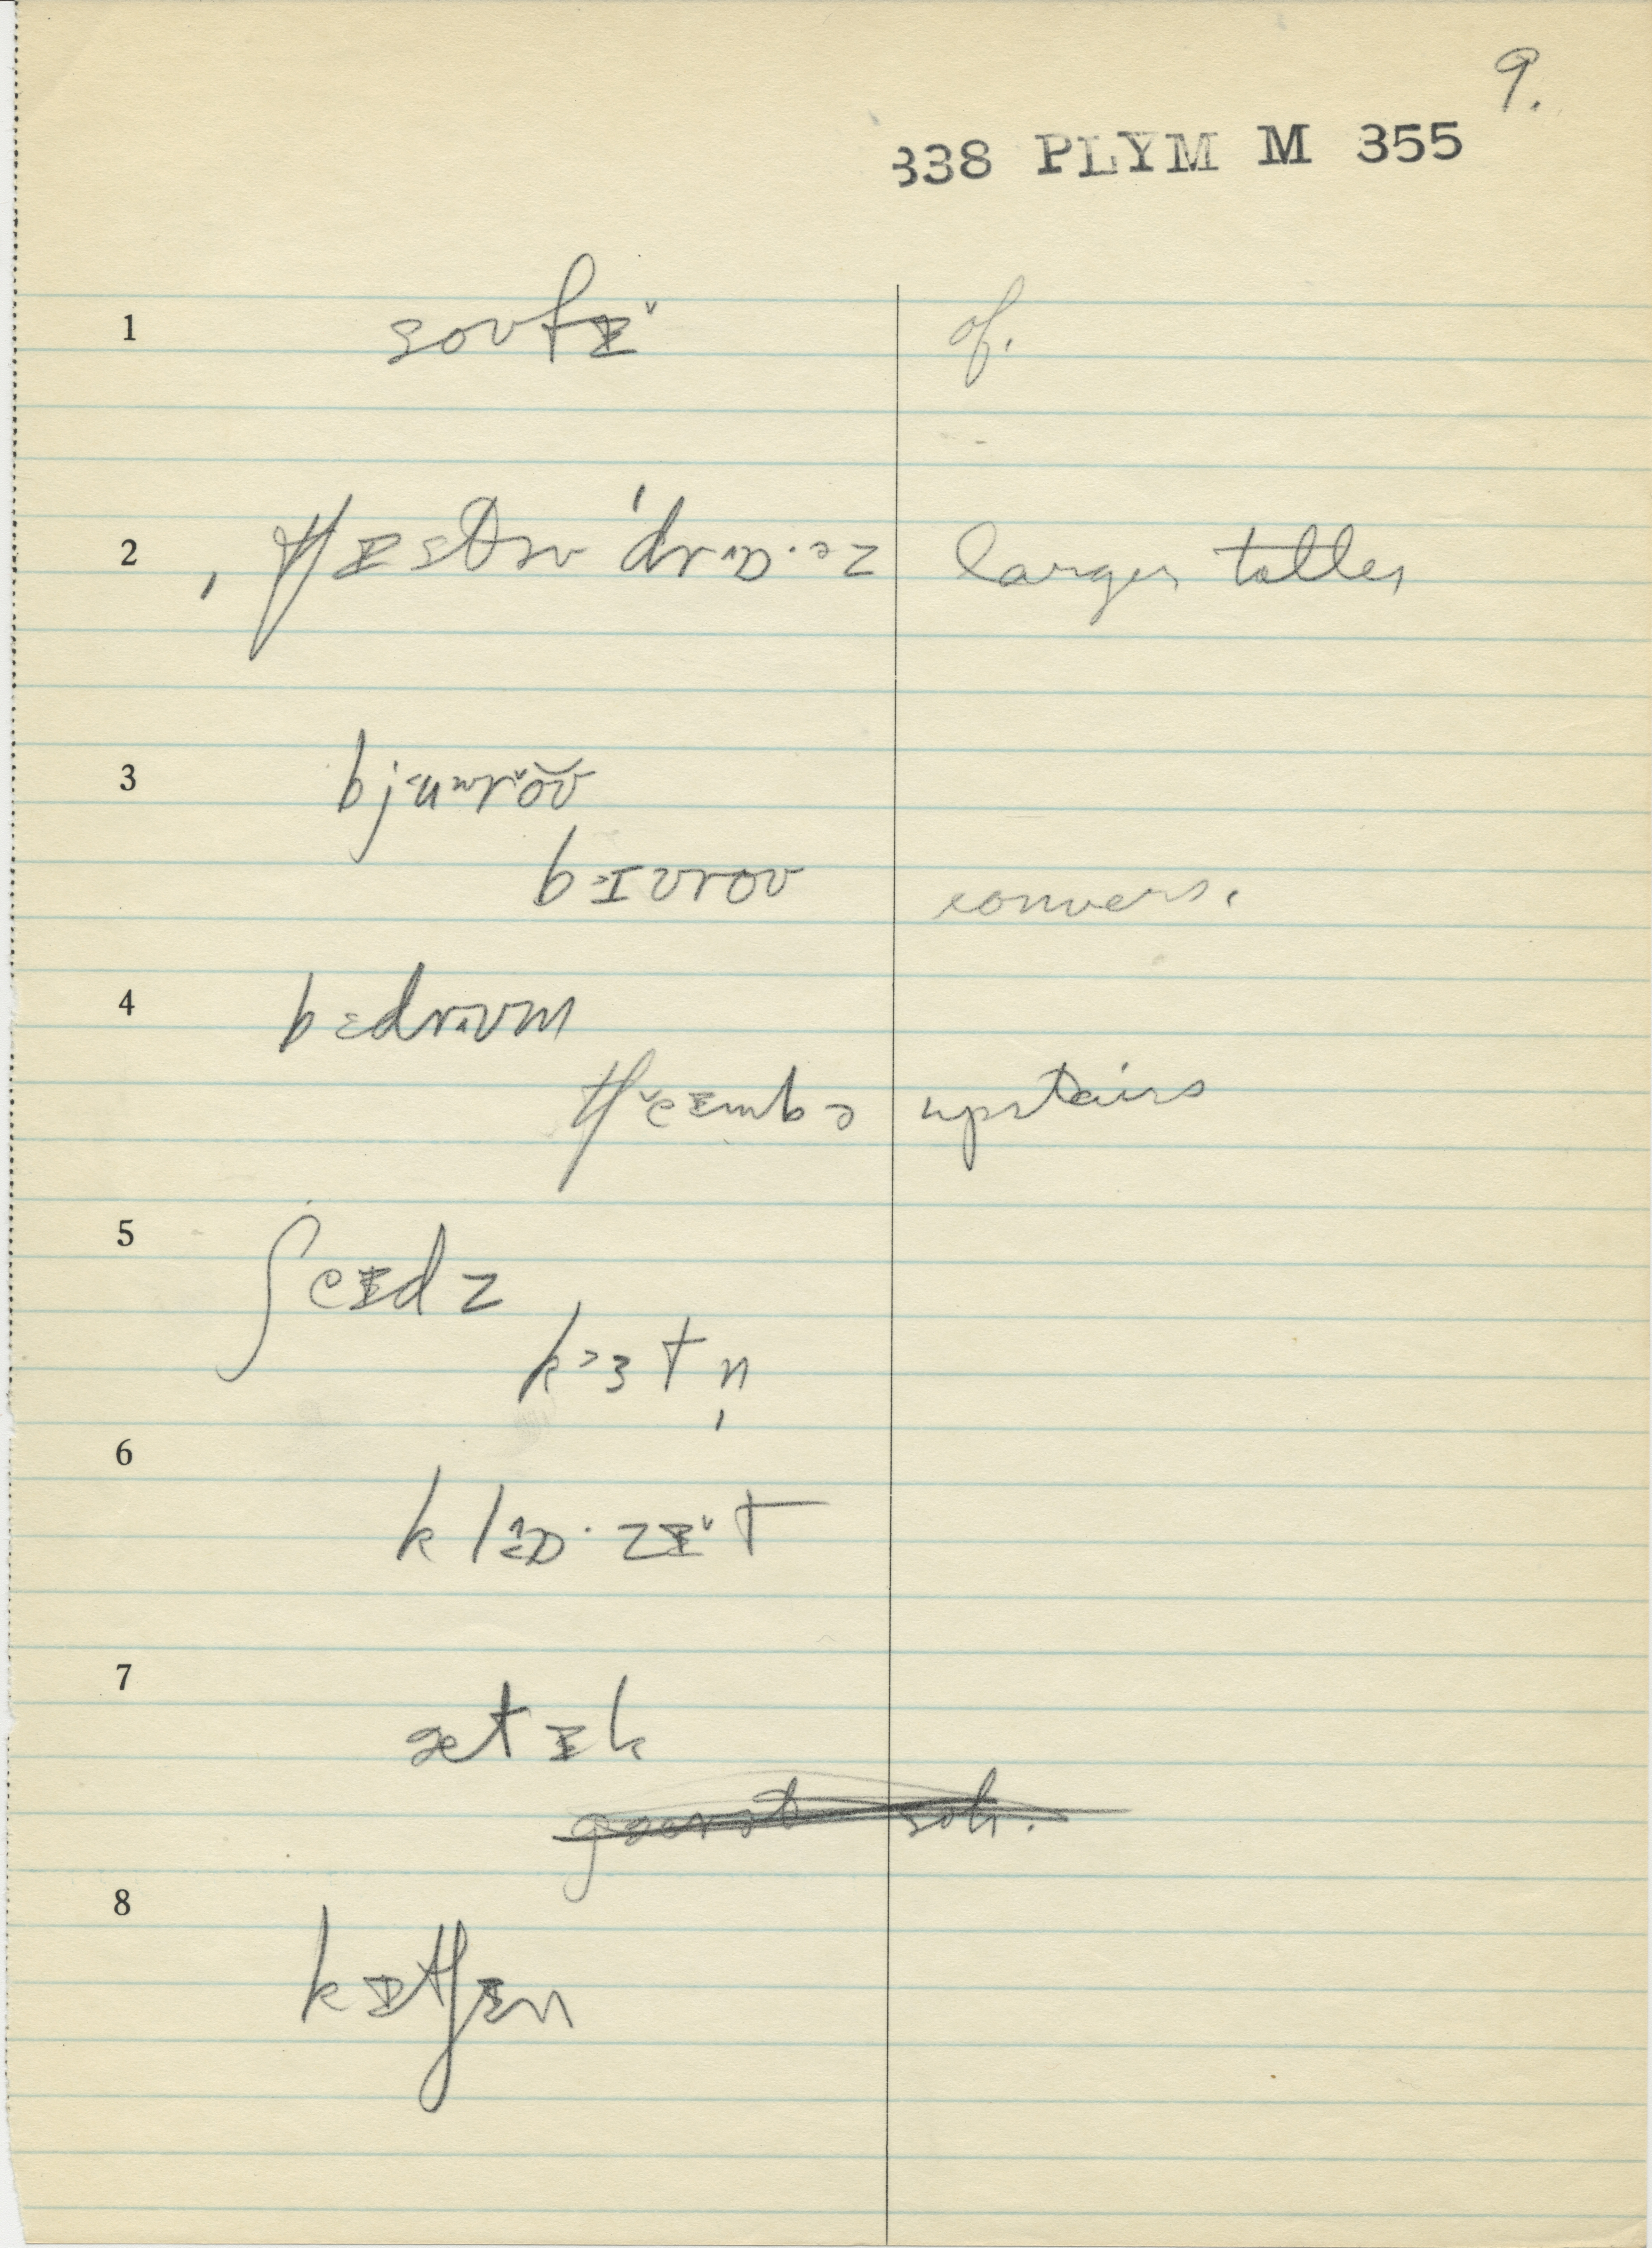 9.
338 PLYM M 355
1 soʊfɪ̵˅ of.
2 ˌtʃɪ̵st əv ˈdrɒ·əz larger taller
3 bjʉwr˅oʊ
b˃ɪʊroʊ convers.
4 bɛdrʊm
tʃ˅eɪ̵mbə upstairs
5 ʃeɪ̵dz
k˃ɜtn̩
6 klɒ·zɪ̵˅t
7 ætɪ̵k
8 kɪ̵tʃɪ̵n